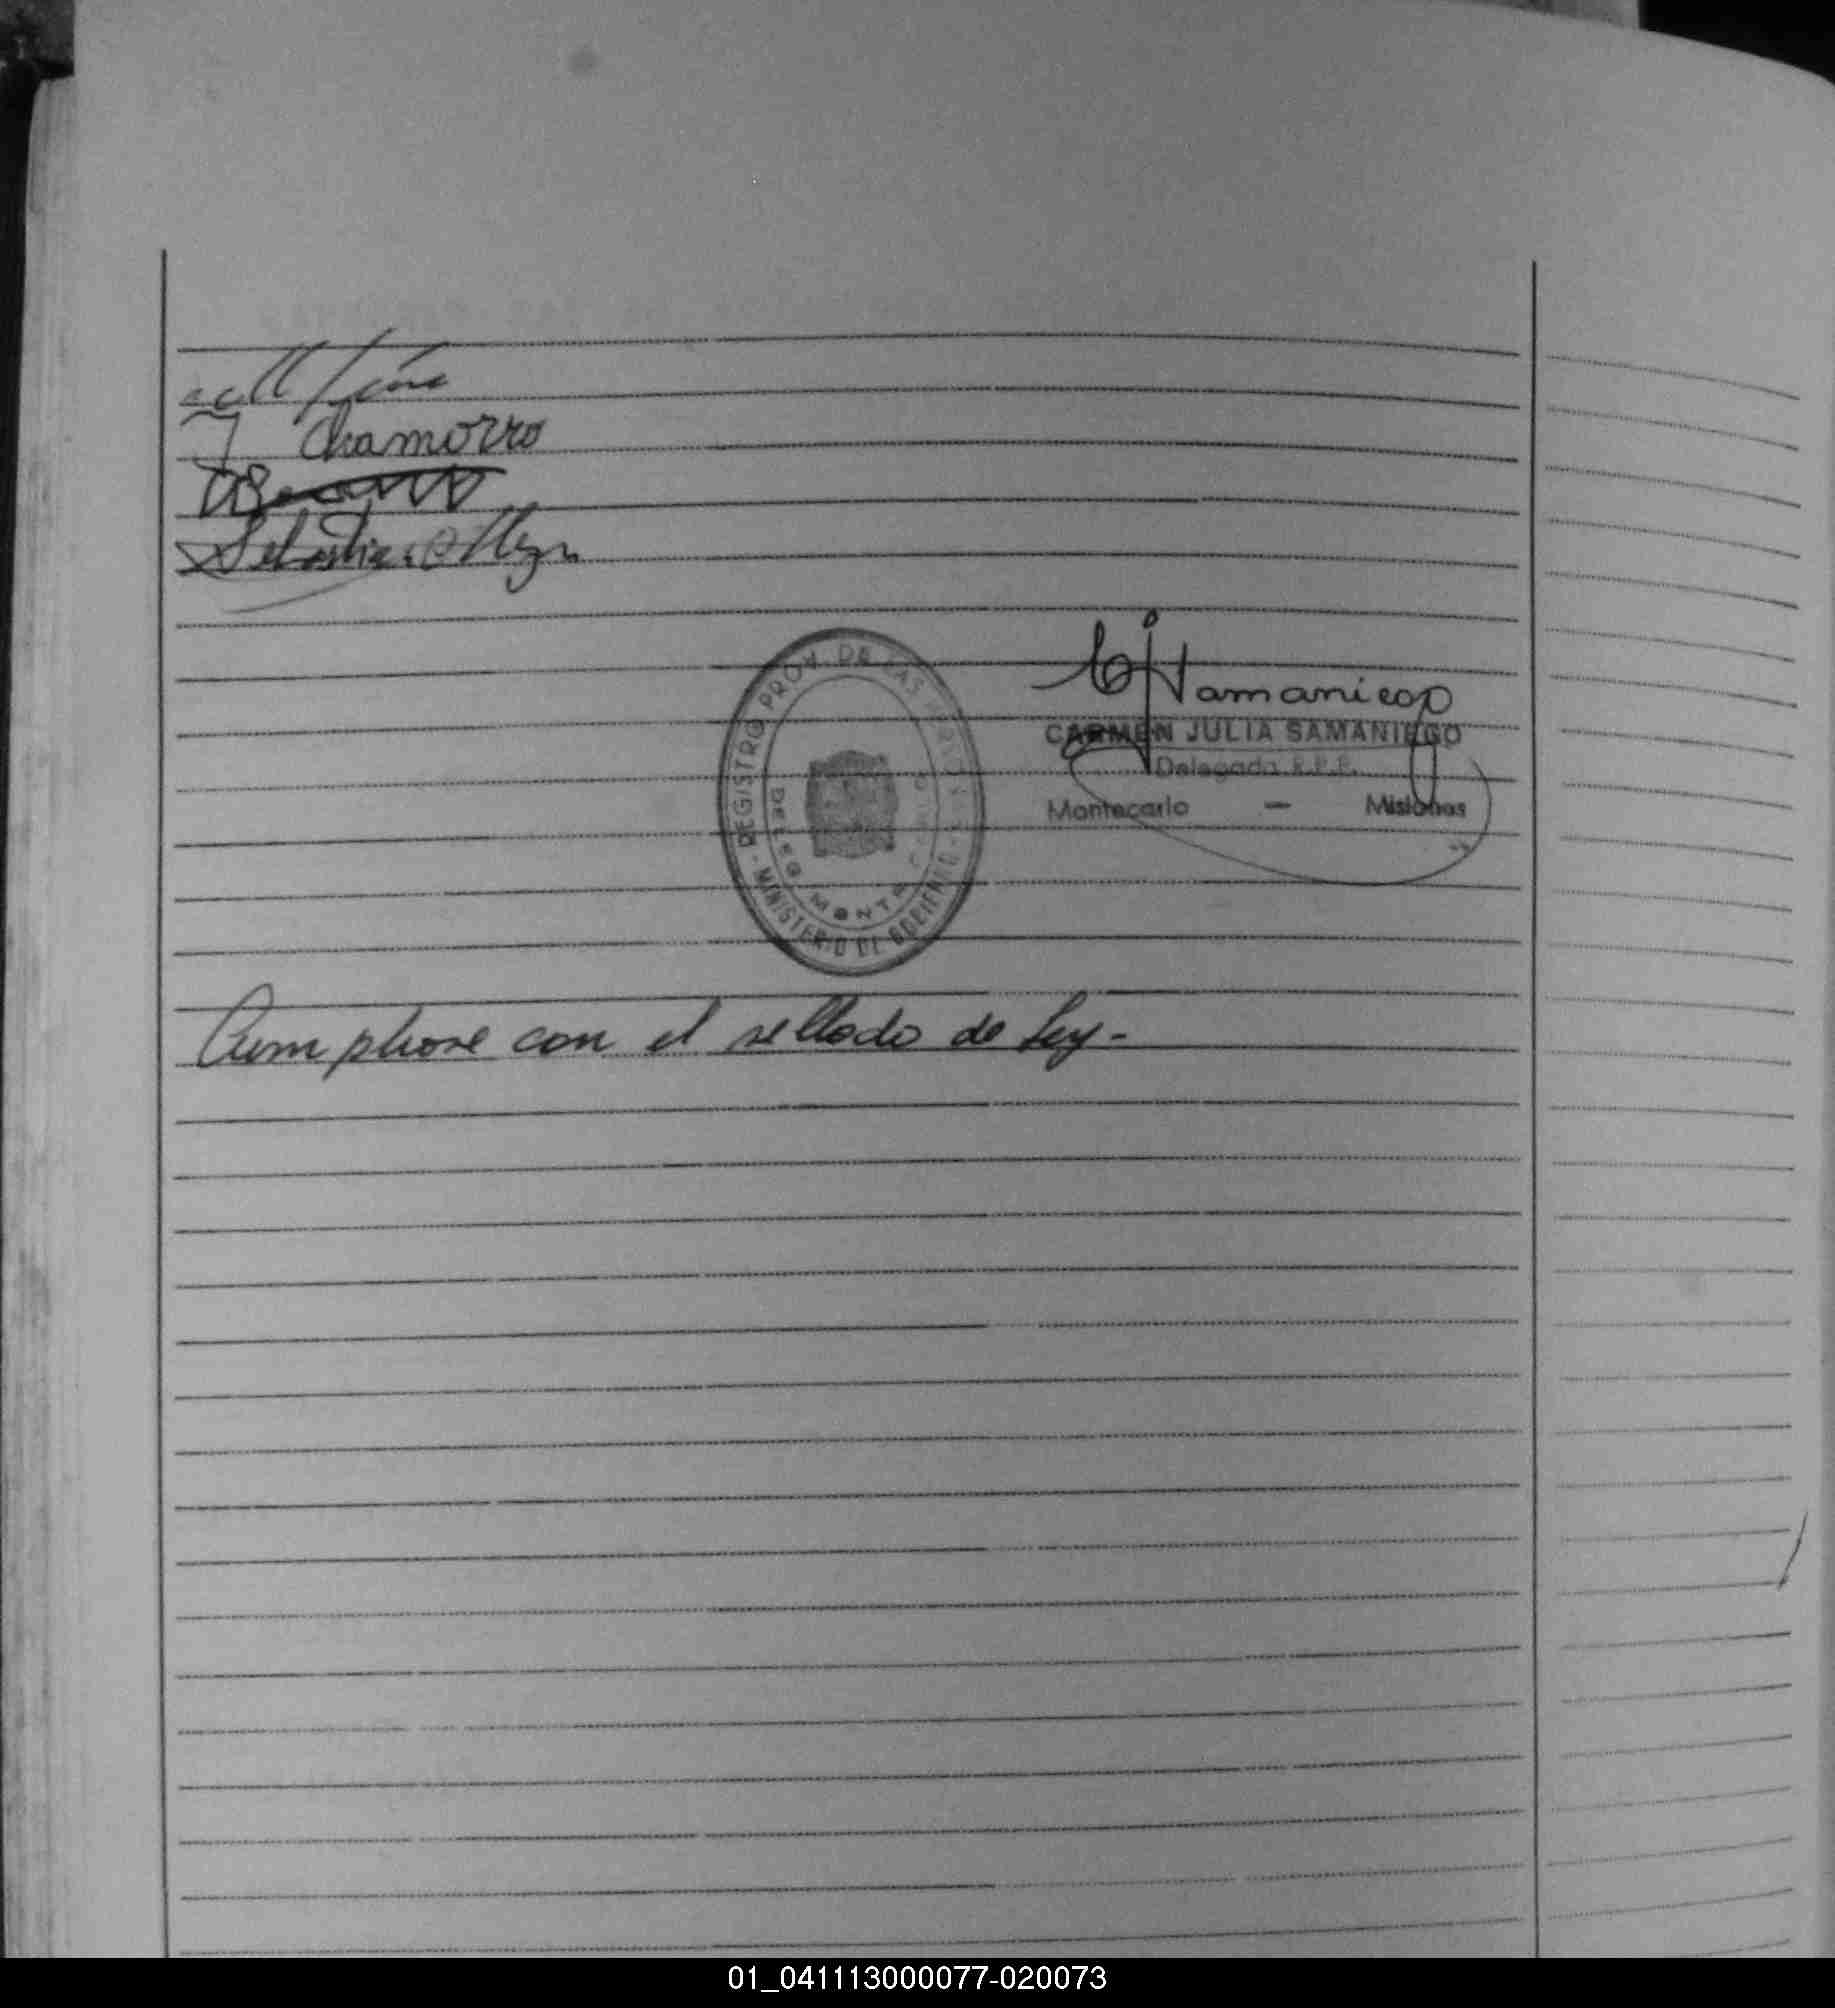 J Chamorro
REGISTRO PROV. DE LAS PERSONAS
MINISTERIO DE GOBIERNO
DELEG MONTECARLO
CJSamaniego
CARMEN JULIA SAMANIEGO
Delegada R.P.P.
Montecarlo — Misiones
Cumplióse con el sellado de Ley-
01_041113000077-020073